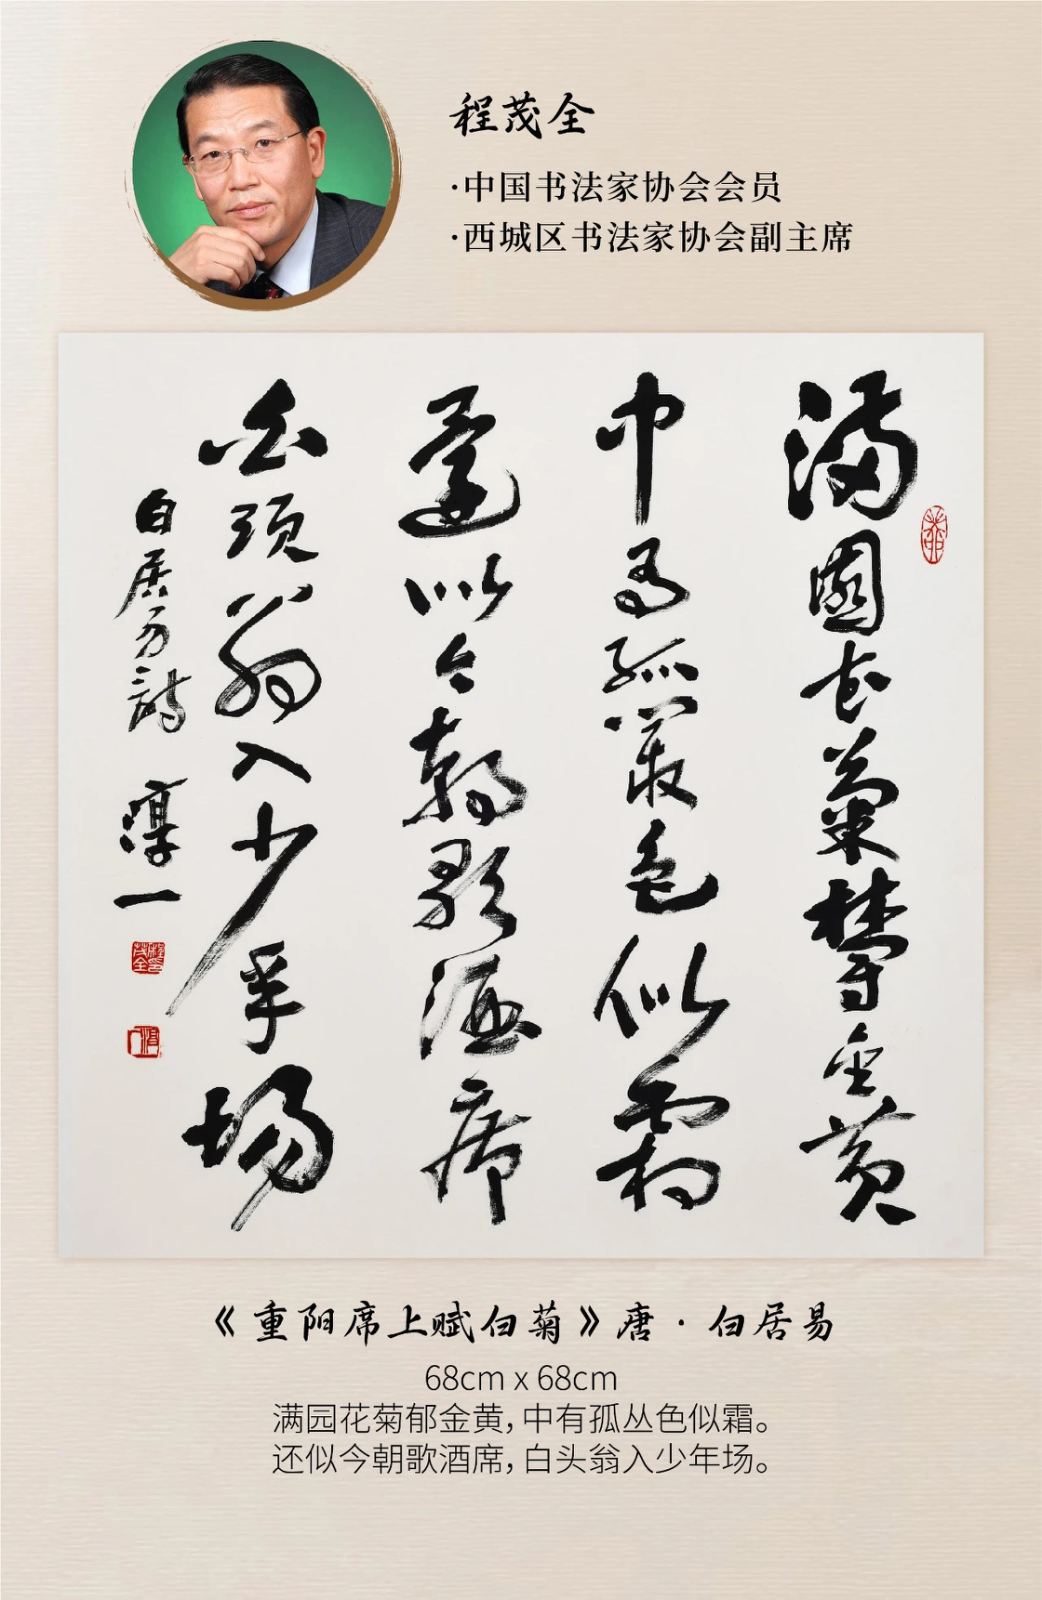 程茂全
·中国书法家协会会员
·西城区书法家协会副主席
满園花菊鬱金黄
中有孤叢色似霜
還似今朝歌酒席
白頭翁入少年場
白居易詩
淳一
程茂全印
《重阳席上赋白菊》唐·白居易
68cm x 68cm
满园花菊郁金黄，中有孤丛色似霜。
还似今朝歌酒席，白头翁入少年场。